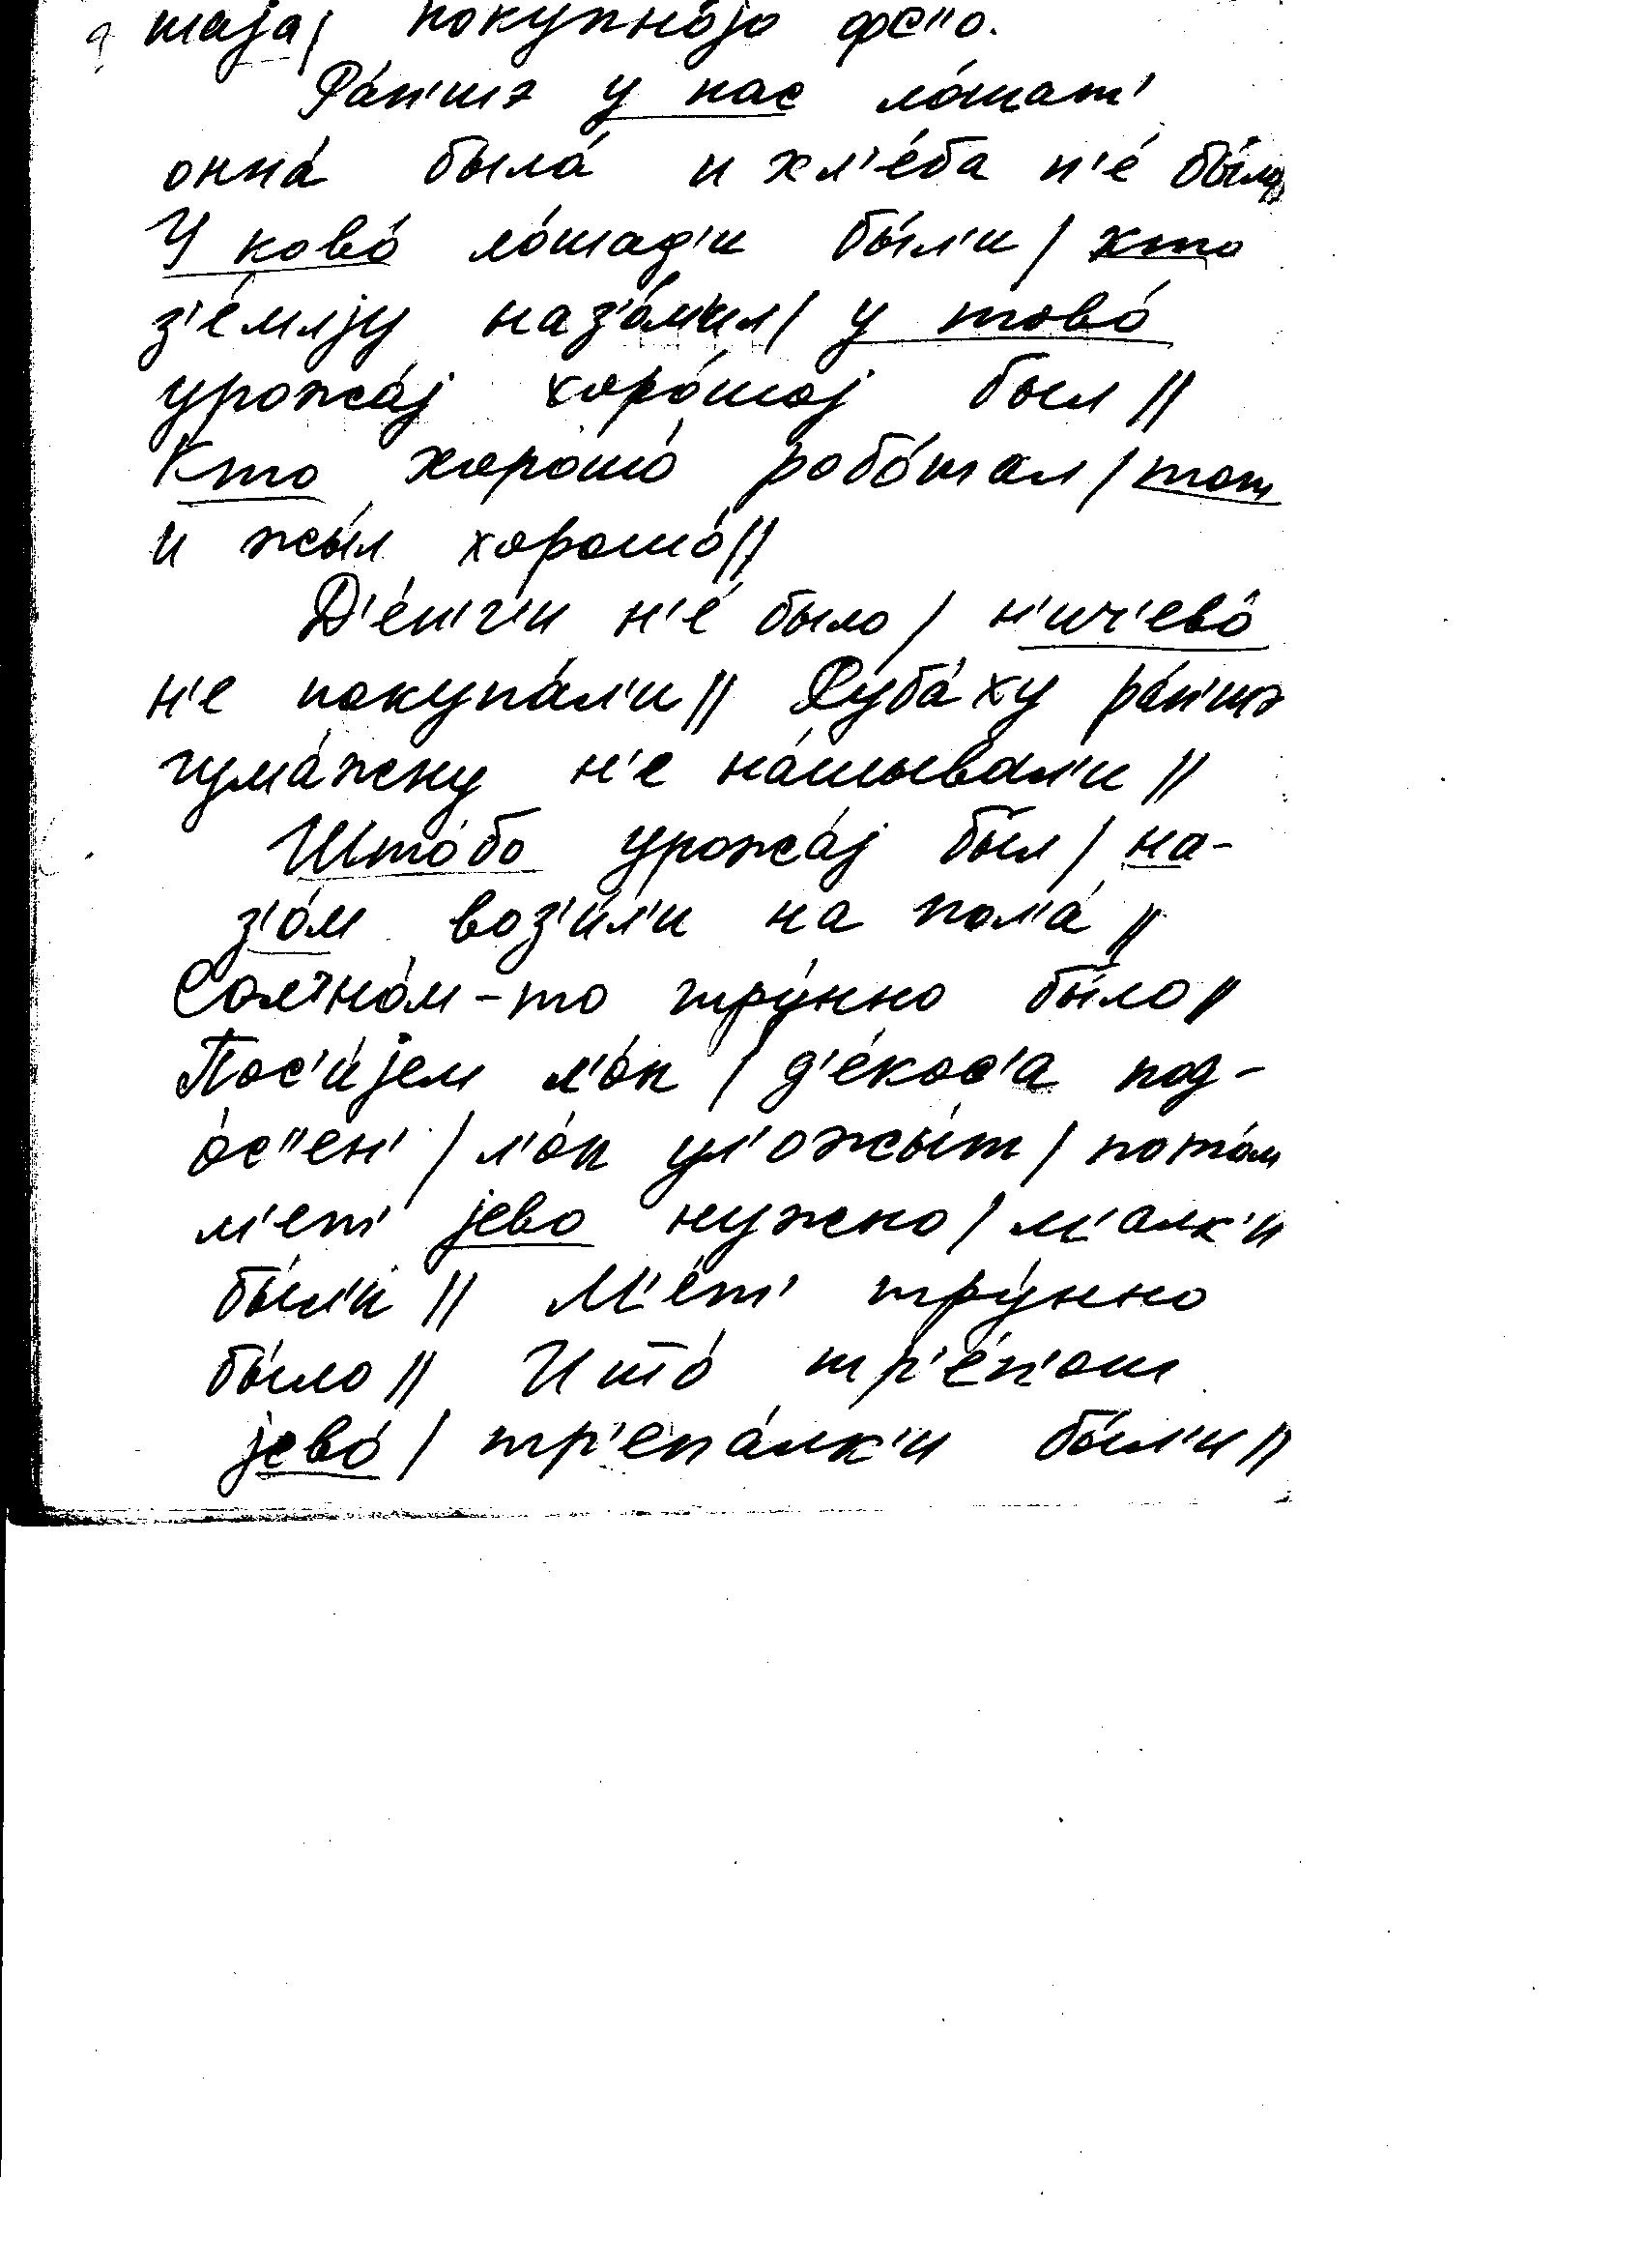 шаја/ покупно́јо фс'о.
Ра́н'шэ у нас ло́шат'
онна́ была́ и хл'е́ба н'е́ бы́ло
У ково́ ло́шад'и бы́л'и / хто
з'е́млју наз'о́мил / у тово́
урожа́ј хоро́шој был //
Кто хорошо́ робо́тал / тот
и жы́л хорошо́ //
Д'е́н'г'и н'е́ было / н'ич'ево́
н'е покупа́л'и // Руба́ху ра́н'шэ
гума́жну н'е на́шывал'и //
Што́бо урожа́ј бы́л / на-
з'о́м воз'и́л'и на пол'а́ //
Со л'но́м-то тру́нно бы́ло //
Пос'и́јем л'о́н / д'е́кос'а под-
о́с'ен' / л'о́н ул'ожы́т / пото́м
м'ет' јево нужно / м'алк'и
бы́л'и // М'е́т' тру́нно
бы́ло // И то́ тр'е́п'ом
јево́ / тр'епа́лк'и бы́л'и //